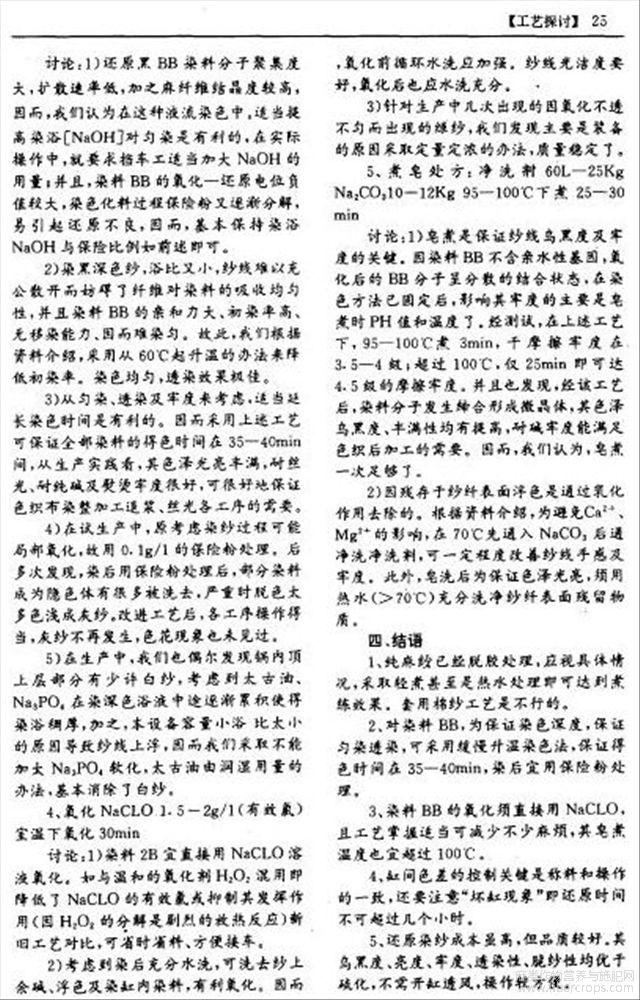 【工艺探讨】 25
讨论:1)还原黑 BB 染料分子聚集度
大,扩散速率低,加之麻纤维结晶度较高,
因而,我们认为在这种液流染色中,适当提
高染浴[NaOH]对匀染是有利的,在实际
操作中,就要求挡车工适当加大 NaOH 的
用量;并且,染料 BB 的氧化—还原电位负
值较大,染色化料过程保险粉又逐渐分解,
易引起还原不良,因而,基本保持染浴
NaOH 与保险比例如前述即可。
2)染黑深色纱,浴比又小,纱线难以充
公散开而妨碍了纤维对染料的吸收均匀
性,并且染料 BB 的亲和力大、初染率高、
无移染能力、因而难染匀。故此,我们根据
资料介绍,采用从 60℃起升温的办法来降
低初染率。染色均匀,透染效果极佳。
3)从匀染、透染及牢度来考虑,适当延
长染色时间是有利的。因而采用上述工艺
可保证全部染料的得色时间在 35—40min
间,从生产实践看,其色泽光亮丰满,耐丝
光、耐纯碱及熨烫牢度很好,可很好地保证
色织布染整加工连装、丝光各工序的需要。
4)在试生产中,原考虑染纱过程可能
局部氧化,故用 0.1g/l 的保险粉处理。后
多次发现,染后用保险粉处理后,部分染料
成为隐色体有很多被洗去,严重时脱色太
多色浅成灰纱。改进工艺后,各工序操作得
当,灰纱不再发生,色花现象也未见过。
5)在生产中,我们也偶尔发现锅内顶
上层部分有少许白纱,考虑到太古油、
Na₃PO₄ 在染深色浴液中途逐渐累积使得
染浴稠厚,加之,本设备容量小浴 比太小
的原因导致纱线上浮,因而我们采取不能
加大 Na₃PO₄ 软化,太古油由润湿用量的
办法,基本消除了白纱。
4、氧化 NaCLO 1.5—2g/l(有效氯)
室温下氧化 30min
讨论:1)染料 2B 宜直接用 NaCLO 溶
液氧化。如与温和的氧化剂 H₂O₂ 混用即
降低了 NaCLO 的有效氯或抑制其发挥作
用(因 H₂O₂ 的分解是剧烈的放热反应)新
旧工艺对比,可省时省料、方便接车。
2)考虑到染后充分水洗,可洗去纱上
余碱、浮色及染缸内染料,有利氧化。因而
,氧化前循环水洗应加强。纱线光洁度要
好,氧化后也应水洗充分。
3)针对生产中几次出现的因氧化不透
不匀而出现的绿纱,我们发现主要是装备
的原因采取定量定浓的办法,质量稳定了。
5、煮皂处方:净洗剂 60L—25Kg
Na₂CO₃10—12Kg 95—100℃下煮 25—30
min
讨论:1)皂煮是保证纱线乌黑度及牢
度的关键。因染料 BB 不含亲水性基团,氧
化后的 BB 分子呈分散的结合状态,在染
色方法已固定后,影响其牢度的主要是皂
煮时 PH 值和温度了。经测试,在上述工艺
下,95—100℃煮 3min,干摩擦牢度在
3.5—4 级;超过 100℃,仅 25min 即可达
4.5 级的摩擦牢度。并且也发现,经该工艺
后,染料分子发生缔合形成微晶体,其色泽
乌黑度、丰满性均有提高,耐碱牢度能满足
色织后加工的需要。因而,我们认为,皂煮
一次足够了。
2)因残存于纱纤表面浮色是通过乳化
作用去除的。根据资料介绍,为避免Ca²⁺、
Mg²⁺ 的影响,在 70℃先通入 NaCO₃ 后通
净洗净洗料,可一定程度改善纱线手感及
牢度。此外,皂洗后为保证色泽光亮,须用
热水(>70℃)充分洗净纱纤表面残留物
质。
四、结语
1、纯麻纱已经脱胶处理,应视具体情
况,采取轻煮甚至是热水处理即可达到煮
练效果。套用棉纱工艺是不行的。
2、对染料 BB,为保证染色深度,保证
匀染透染,可采用缓慢升温染色法,保证得
色时间在 35—40min,染后宜用保险粉处
理。
3、染料 BB 的氧化须直接用 NaCLO,
且工艺掌握适当可减少不少麻烦,其皂煮
温度也宜超过 100℃。
4、缸间色差的控制关键是称料和操作
的一致,还要注意“坏缸现象”即还原时间
不可超过几个小时。
5、还原染纱成本虽高,但品质较好。其
乌黑度、亮度、牢度、透染性、脆纱性均优于
硫化,不需开缸透风,操作较方便。